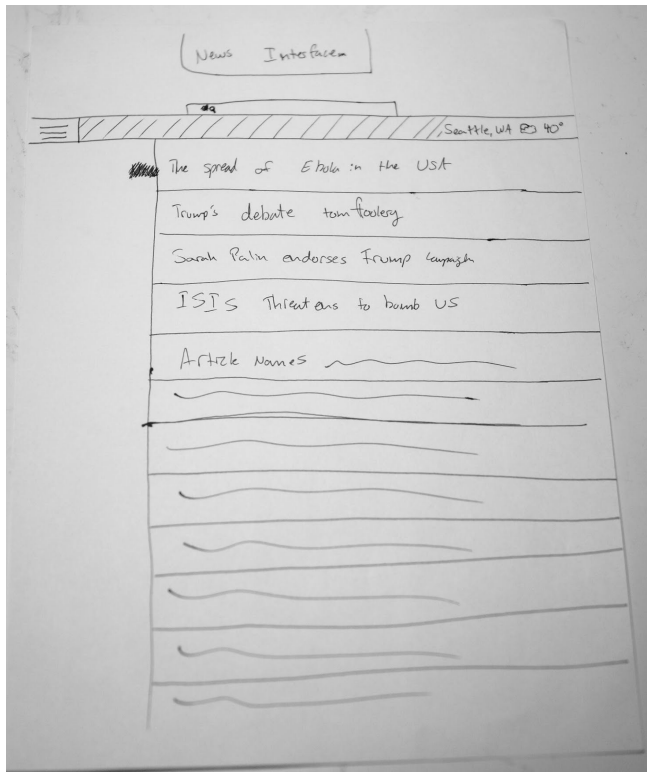 News Interface
Seattle, WA 40°
The spread of Ebola in the USA
Trump's debate tomfoolery
Sarah Palin endorses Trump campaign
ISIS Threatens to bomb US
Article Names